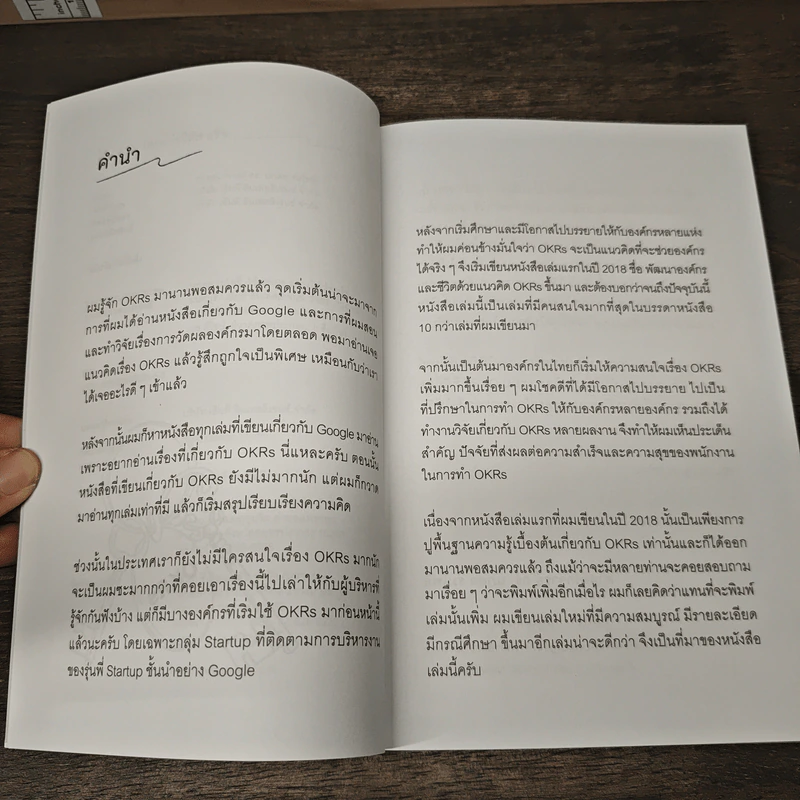 คำนำ
ผมรู้จัก OKRs มานานพอสมควรแล้ว จุดเริ่มต้นน่าจะมาจาก
การที่ผมได้อ่านหนังสือเกี่ยวกับ Google และการที่ผมสอน
และทำวิจัยเรื่องการวัดผลองค์กรมาโดยตลอด พอมาอ่านเจอ
แนวคิดเรื่อง OKRs แล้วรู้สึกถูกใจเป็นพิเศษ เหมือนกับว่าเรา
ได้เจออะไรดี ๆ เข้าแล้ว
หลังจากนั้นผมก็หาหนังสือทุกเล่มที่เขียนเกี่ยวกับ Google มาอ่าน
เพราะอยากอ่านเรื่องที่เกี่ยวกับ OKRs นี่แหละครับ ตอนนั้น
หนังสือที่เขียนเกี่ยวกับ OKRs ยังมีไม่มากนัก แต่ผมก็กวาด
มาอ่านทุกเล่มเท่าที่มี แล้วก็เริ่มสรุปเรียบเรียงความคิด
ช่วงนั้นในประเทศเราก็ยังไม่มีใครสนใจเรื่อง OKRs มากนัก
จะเป็นผมซะมากกว่าที่คอยเอาเรื่องนี้ไปเล่าให้กับผู้บริหารที่
รู้จักกันฟังบ้าง แต่ก็มีบางองค์กรที่เริ่มใช้ OKRs มาก่อนหน้านี้
แล้วนะครับ โดยเฉพาะกลุ่ม Startup ที่ติดตามการบริหารงาน
ของรุ่นพี่ Startup ชั้นนำอย่าง Google
หลังจากเริ่มศึกษาและมีโอกาสไปบรรยายให้กับองค์กรหลายแห่ง
ทำให้ผมค่อนข้างมั่นใจว่า OKRs จะเป็นแนวคิดที่จะช่วยองค์กร
ได้จริง ๆ จึงเริ่มเขียนหนังสือเล่มแรกในปี 2018 ชื่อ พัฒนาองค์กร
และชีวิตด้วยแนวคิด OKRs ขึ้นมา และต้องบอกว่าจนถึงปัจจุบันนี้
หนังสือเล่มนี้เป็นเล่มที่มีคนสนใจมากที่สุดในบรรดาหนังสือ
10 กว่าเล่มที่ผมเขียนมา
จากนั้นเป็นต้นมาองค์กรในไทยก็เริ่มให้ความสนใจเรื่อง OKRs
เพิ่มมากขึ้นเรื่อย ๆ ผมโชคดีที่ได้มีโอกาสไปบรรยาย ไปเป็น
ที่ปรึกษาในการทำ OKRs ให้กับองค์กรหลายองค์กร รวมถึงได้
ทำงานวิจัยเกี่ยวกับ OKRs หลายผลงาน จึงทำให้ผมเห็นประเด็น
สำคัญ ปัจจัยที่ส่งผลต่อความสำเร็จและความสุขของพนักงาน
ในการทำ OKRs
เนื่องจากหนังสือเล่มแรกที่ผมเขียนในปี 2018 นั้นเป็นเพียงการ
ปูพื้นฐานความรู้เบื้องต้นเกี่ยวกับ OKRs เท่านั้นและก็ได้ออก
มานานพอสมควรแล้ว ถึงแม้ว่าจะมีหลายท่านจะคอยสอบถาม
มาเรื่อย ๆ ว่าจะพิมพ์เพิ่มอีกเมื่อไร ผมก็เลยคิดว่าแทนที่จะพิมพ์
เล่มนั้นเพิ่ม ผมเขียนเล่มใหม่ที่มีความสมบูรณ์ มีรายละเอียด
มีกรณีศึกษา ขึ้นมาอีกเล่มน่าจะดีกว่า จึงเป็นที่มาของหนังสือ
เล่มนี้ครับ